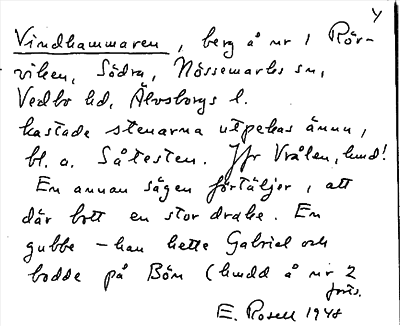 4
Vindhammaren, berg å nr 1 Rör-
viken, Södra, Nössemarks sn,
Vedbo hd, Älvsborgs l.
kastade stenarna utpekas ännu,
bl. a. Såtesten. Jfr Vrålen, hmd!
En annan sägen förtäljer, att
där bott en stor drake. En
gubbe – han hette Gabriel och
bodde på Bön (hmdd å nr 2
forts.
E. Rosell 1948